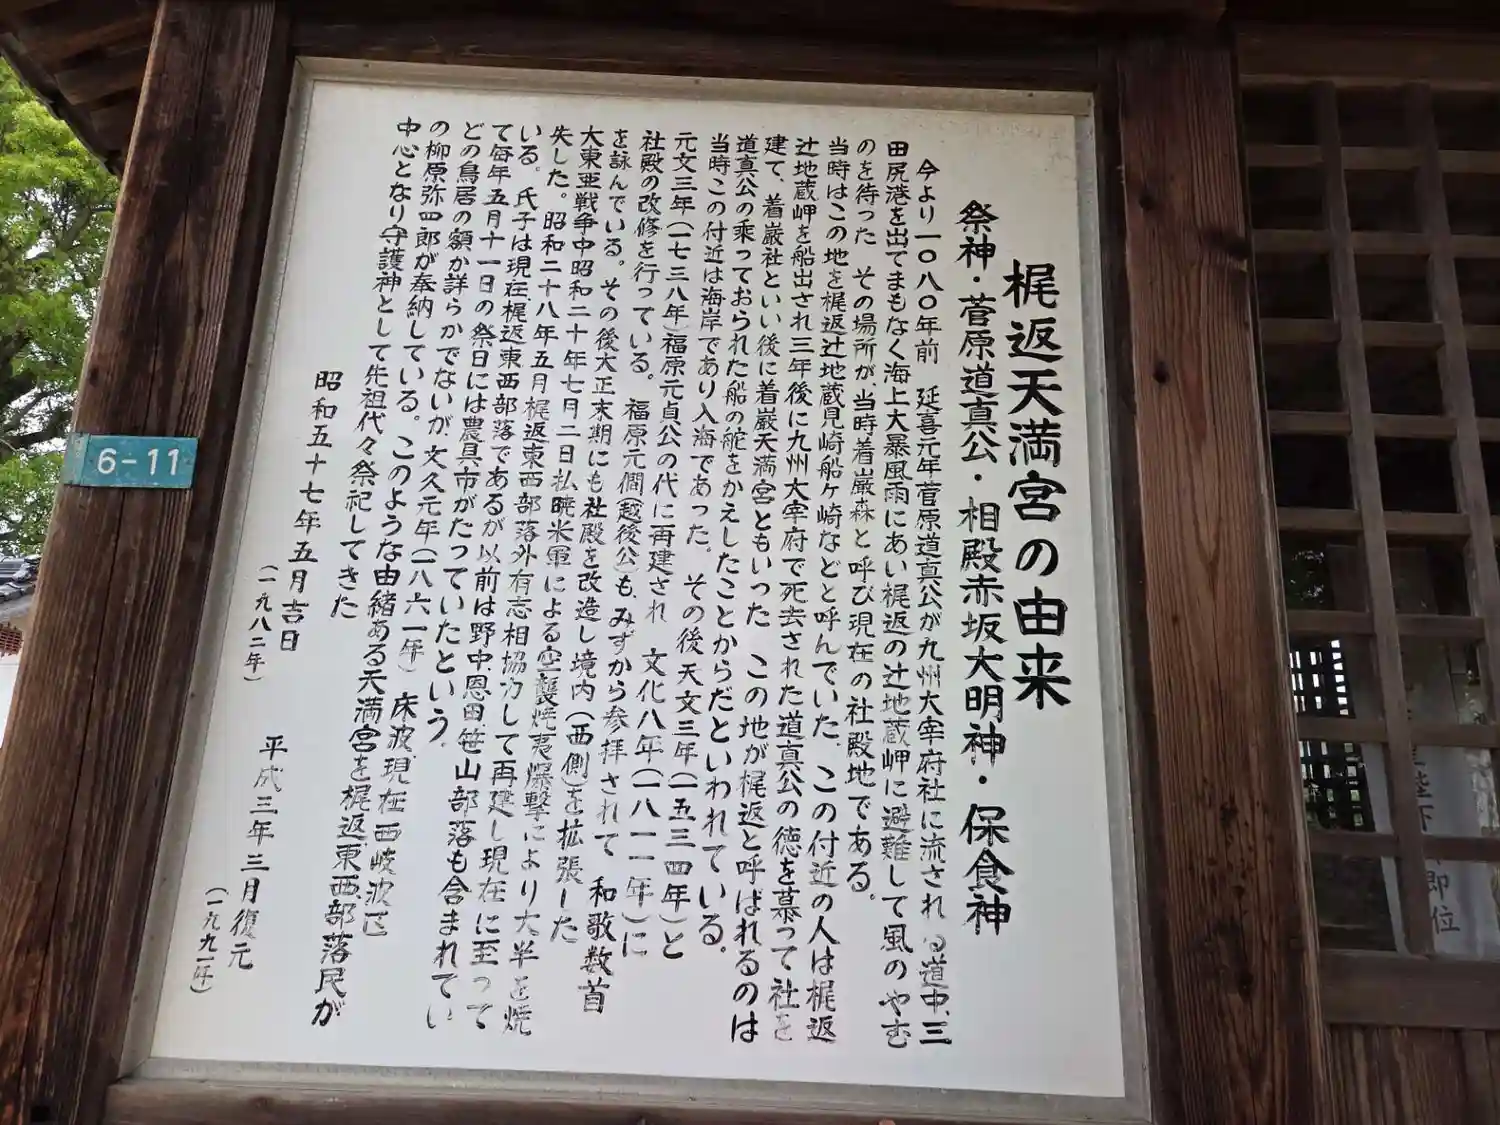 梶返天満宮の由来
祭神・菅原道真公・相殿赤坂大明神・保食神
今より一〇八〇年前　延喜元年菅原道真公が九州大宰府社に流され る道中、三
田尻港を出てまもなく海上大暴風雨にあい梶返の辻地蔵岬に避難して風のやむ
のを待った　その場所が、当時着巌森と呼び現在の社殿地である。
当時はこの地を梶返辻地蔵見崎船ヶ崎などと呼んでいた、この付近の人は梶返
辻地蔵岬を船出され三年後に九州大宰府で死去された道真公の徳を慕って社を
建て、着巌社といい後に着巌天満宮ともいった　この地が梶返と呼ばれるのは
道真公の乗っておられた船の舵をかえしたことからだといわれている。
当時この付近は海岸であり入海であった。その後天文三年（一五三四年）と
元文三年（一七三八年）福原元貞公の代に再建され　文化八年（一八一一年）に
社殿の改修を行っている。福原元僴（越後公）も、みずから参拝されて　和歌数首
を詠んでいる。その後大正末期にも社殿を改造し境内（西側）を拡張した
大東亜戦争中昭和二十年七月二日払暁米軍による空襲焼夷爆撃により大半を焼
失した。昭和二十八年五月梶返東西部落外有志相協力して再建し現在に至って
いる。氏子は現在、梶返東西部落であるが以前は野中、恩田、笹山部落も含まれてい
て毎年五月十一日の祭日には農具市がたっていたという、
どの鳥居の額か詳らかでないが文久元年（一八六一年）床波、現在西岐波区
の柳原弥四郎が奉納している。このような由緒ある天満宮を梶返東西部落民が
中心となり守護神として先祖代々祭祀してきた
昭和五十七年五月吉日
（一九八二年）
平成三年三月復元
（一九九一年）
6-11
即位